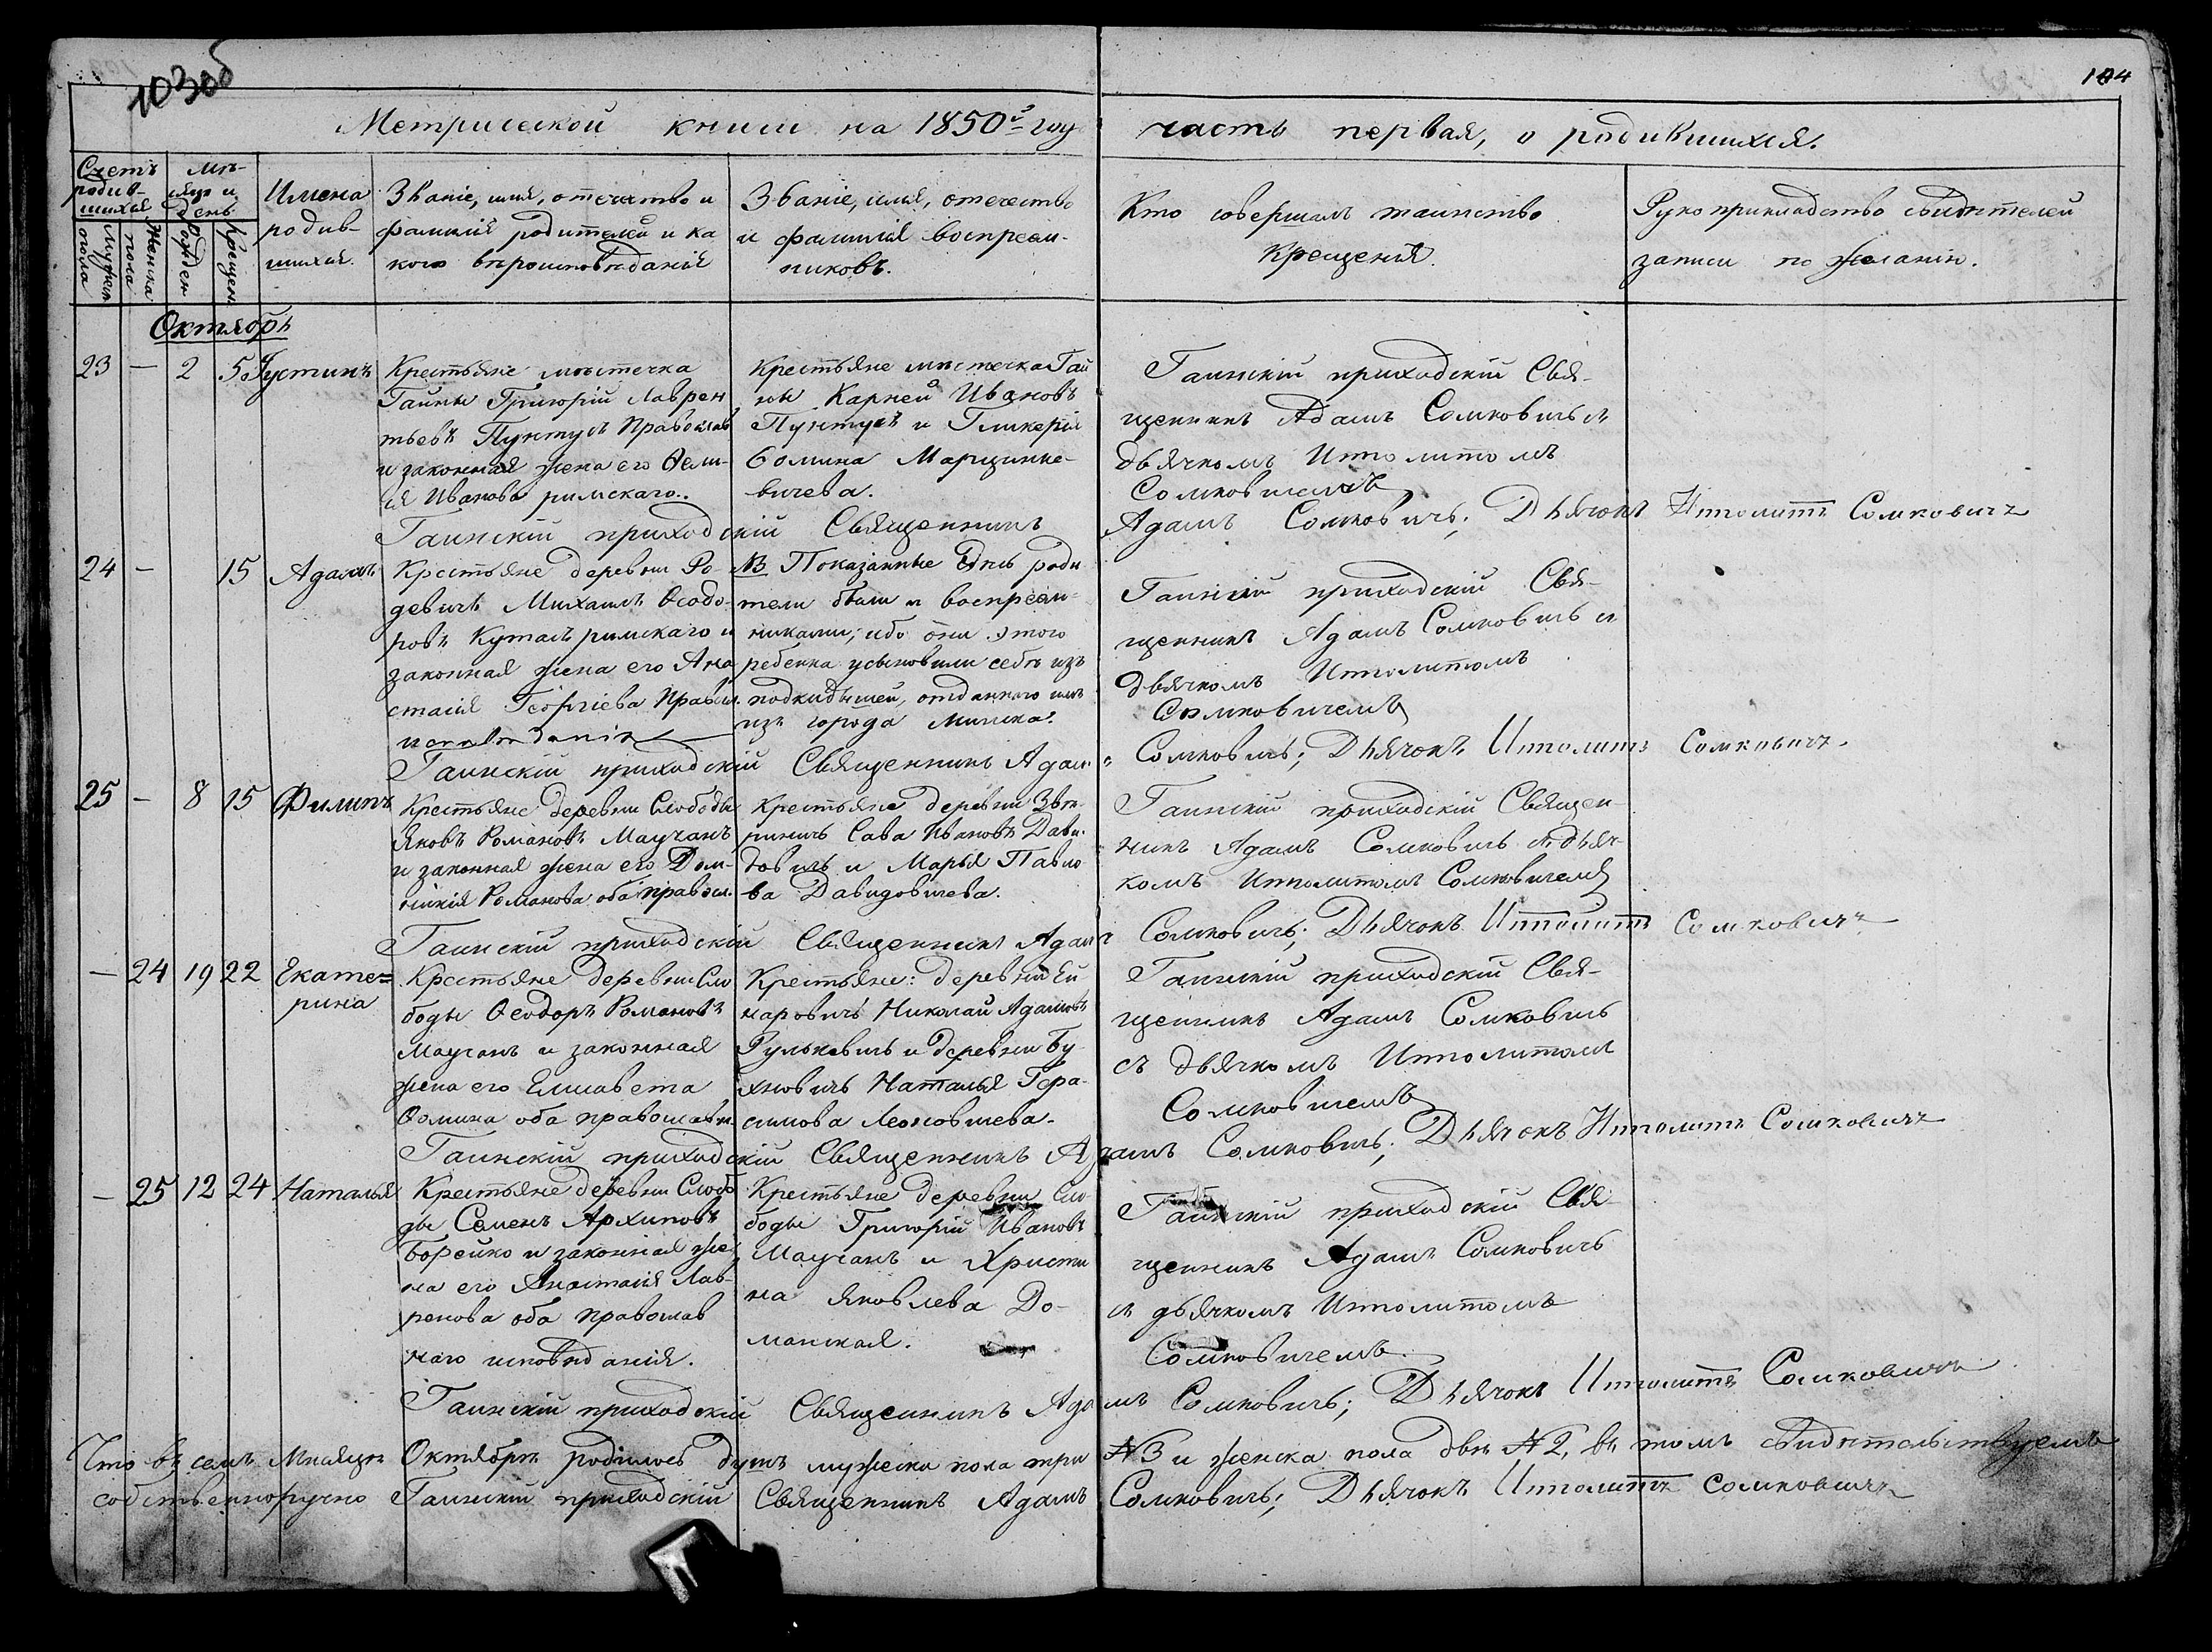 103об
104
Метрической книги на 1850й году часть первая, о родившихся.
Счетъ родившихся
Мужеска пола
Женска пола
Мѣсяцъ и день
Рожден
Крещен
Имена родившихся.
Званіе, имя, отечество и
фамилія родителей и ка
кого вѣроисповѣданія
Званіе, имя, отечество
и фамилія воспреем-
никовъ.
Кто совершалъ таинство
Крещенія.
Рукоприкладство свидѣтелей
записи по желанію.
Октябрь
23 — 2 5 Іустинъ
Крестьяне мѣстечка
Гайны Григорій Лаврен
тьевъ Пунтусъ Православ
и законная жена его
ія Иванова римскаго.
Крестьяне мѣстечка Гай
ны Карней Ивановъ
Пунтусъ и Гликерія
Ѳомина Марцинке-
вичева.
Гаинскій приходскій Свя-
щенникъ Адамъ Сомковичь съ
дьячкомъ Ипполитомъ
Сомковичемъ
Гаинскій приходскій Священникъ Адамъ Сомковичь; Дьячокъ Ипполитъ Сомковичъ
24 — 15 Адамъ
Крестьяне деревни Ро-
девичь Михаилъ Ѳеодо-
ровъ Кутасъ римскаго и
законная жена его Ана
стасія Георгіева Правосл.
исповѣданія
NB Показанные здѣсь роди
тели были и воспреем-
никами, ибо они этого
ребенка усыновили себѣ изъ
подкидышей, отданного имъ
изъ города Минска.
Гаинскій приходскій Свя-
щенникъ Адамъ Сомковичь съ
дьячкомъ Ипполитомъ
Сомковичемъ
Гаинскій приходскій Священникъ Адамъ Сомковичь; Дьячокъ Ипполитъ Сомковичъ
25 — 8 15 Филипъ
Крестьяне деревни Слободы
Яковъ Романовъ Маучанъ
и законная жена его Дом-
никія Романова оба правосл.
Крестьяне деревни Звѣ-
риничь Сава Ивановъ Дави-
довичь и Марья Павло
ва Давидовичева.
Гаинскій приходскій Священ-
никъ Адамъ Сомковичь съ дьяч-
комъ Ипполитомъ Сомковичемъ
Гаинскій приходскій Священникъ Адамъ Сомковичь; Дьячокъ Ипполитъ Сомковичъ
— 24 19 22 Екате=
рина
Крестьяне деревни Сло
боды Ѳеодоръ Романовъ
Маучанъ и законная
жена его Елисавета
Ѳомина оба православн.
Крестьяне: деревни Ей
наровичь Николай Адамовъ
Рулькевичь и деревни Бу-
яновичь Наталья Гера-
симова Леоновичева.
Гаинскій приходскій Свя-
щенникъ Адамъ Сомковичь
съ дьячкомъ Ипполитомъ
Сомковичемъ
Гаинскій приходскій Священникъ Адамъ Сомковичь; Дьячокъ Ипполитъ Сомковичъ
— 25 12 24 Наталья
Крестьяне деревни Слобо
ды Семенъ Архиповъ
Борейко и законная же
на его Анастасія Лав-
ренова оба православ
наго исповѣданія.
Крестьяне деревни Сло
боды Григорій Ивановъ
Маучанъ и Христи
на Яковлева До-
манская.
Гаинскій приходскій Свя
щенникъ Адамъ Сомковичь
съ дьячкомъ Ипполитомъ
Сомковичемъ.
Гаинскій приходскій Священникъ Адамъ Сомковичь; Дьячокъ Ипполитъ Сомковичъ
Что въ семъ Мѣсяцѣ Октябрѣ родилось душъ мужеска пола три №3 и женска пола двѣ №2, въ томъ свидѣтельствуемъ
собственноручно Гаинскій приходскій Священникъ Адамъ Сомковичь; Дьячокъ Ипполитъ Сомковичъ